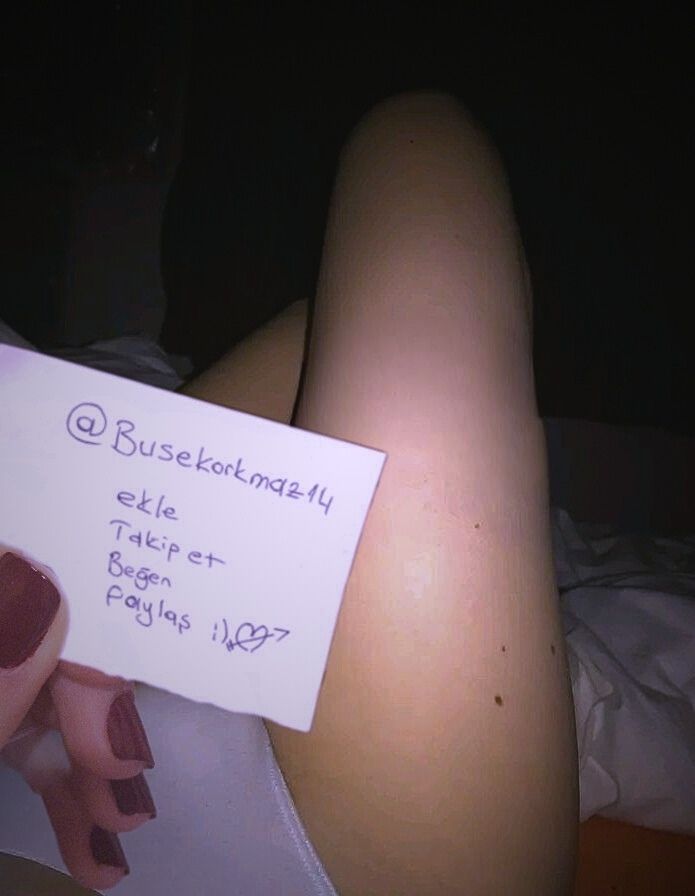 @Busekorkmaz14
ekle
Takip et
Beğen
Paylaş :)